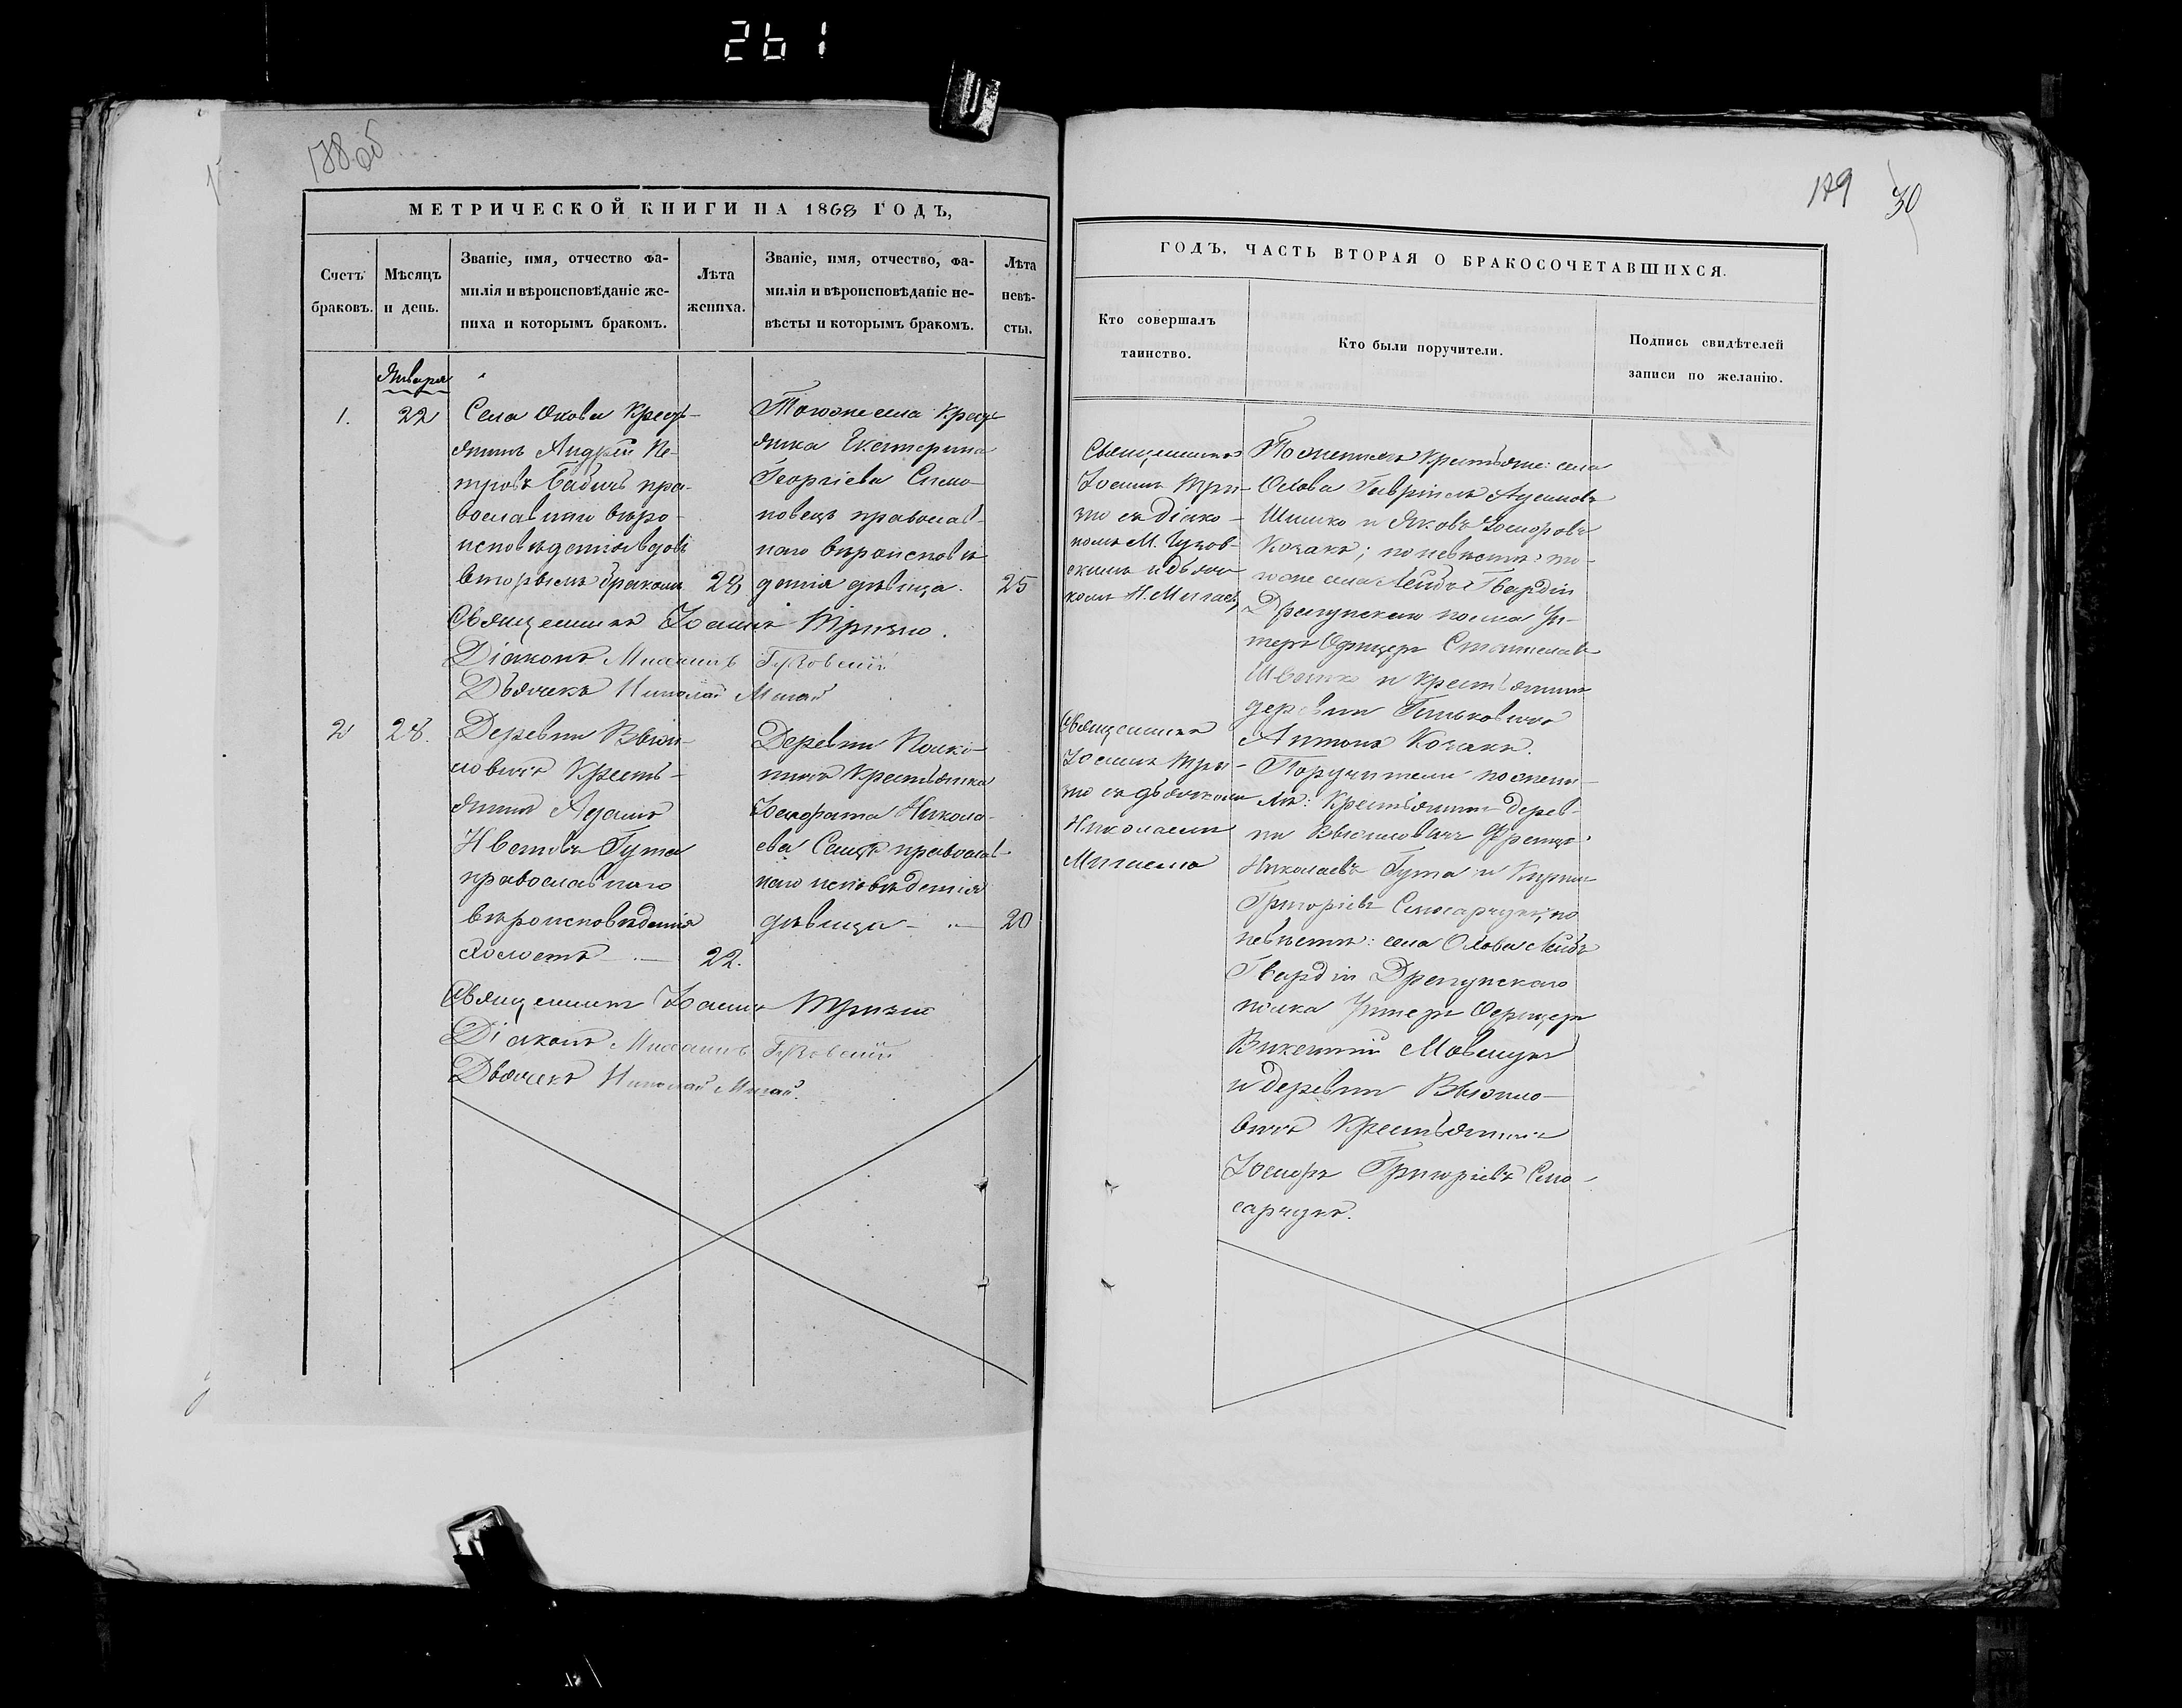 261
188 об
МЕТРИЧЕСКОЙ КНИГИ НА 1868 ГОДЪ,
Счетъ браковъ.
Мѣсяцъ и день.
Званіе, имя, отчество фа-
милія и вѣроисповѣданіе же-
ниха и которымъ бракомъ.
Лѣта жениха.
Званіе, имя, отчество, фа-
милія и вѣроисповѣданіе не-
вѣсты и которымъ бракомъ.
Лѣта невѣ-
сты.
Января
1.
22
Села Охова Кресть-
янинъ Андрей Пе-
тровъ Бабичъ пра-
вославнаго вѣро-
исповѣданія вдовъ
вторымъ бракомъ
28
Тогоже села Кресть
янка Екатерина
Георгіева
православ-
наго вѣроисповѣ
данія дѣвица.
25
Священникъ Іоаннъ Тризно.
Діаконъ Михаилъ
Дьячекъ Николай Мигай
2
28.
Деревни
Кресть-
янинъ Адамъ
Ивановъ Гума
православнаго
вѣроисповѣданія
холостъ
22.
Деревни
Крестьянка
Іосафата Никола-
ева православ
наго исповѣданія
дѣвица
20
Священникъ Іоаннъ Тризно
Діаконъ Михаилъ
Дьячекъ Николай Мигай.
189 30
ГОДЪ, ЧАСТЬ ВТОРАЯ О БРАКОСОЧЕТАВШИХСЯ.
Кто совершалъ
таинство.
Кто были поручители.
Подпись свидѣтелей
записи по желанію.
Священникъ
Іоаннъ Три-
зно съ діако-
номъ М.
скимъ и дьяч
комъ Н. Мигаемъ
По женихѣ Крестьяне: села
Охова Гавріилъ
Шишко и Яковъ Іосифовъ
Козакъ; по невѣстѣ: то-
гоже села Лейбъ Гвардіи
Драгунскаго полка Ун-
теръ Офицеръ Станиславъ
и Крестьянинъ
деревни
Антонъ Козакъ.
Священникъ
Іоаннъ Три-
зно съ дьячкомъ
Николаемъ
Мигаемъ
Поручители по жени-
хѣ: Крестьянинъ дерев-
ни
Николаевъ Гума и
Григорьевъ Слюсарчукъ, по
невѣстѣ: села Охова Лейбъ
Гвардіи Драгунскаго
полка Унтеръ Офицеръ
Викентій
и деревни
Крестьянинъ
Іосифъ Григорьевъ Слю-
сарчукъ.